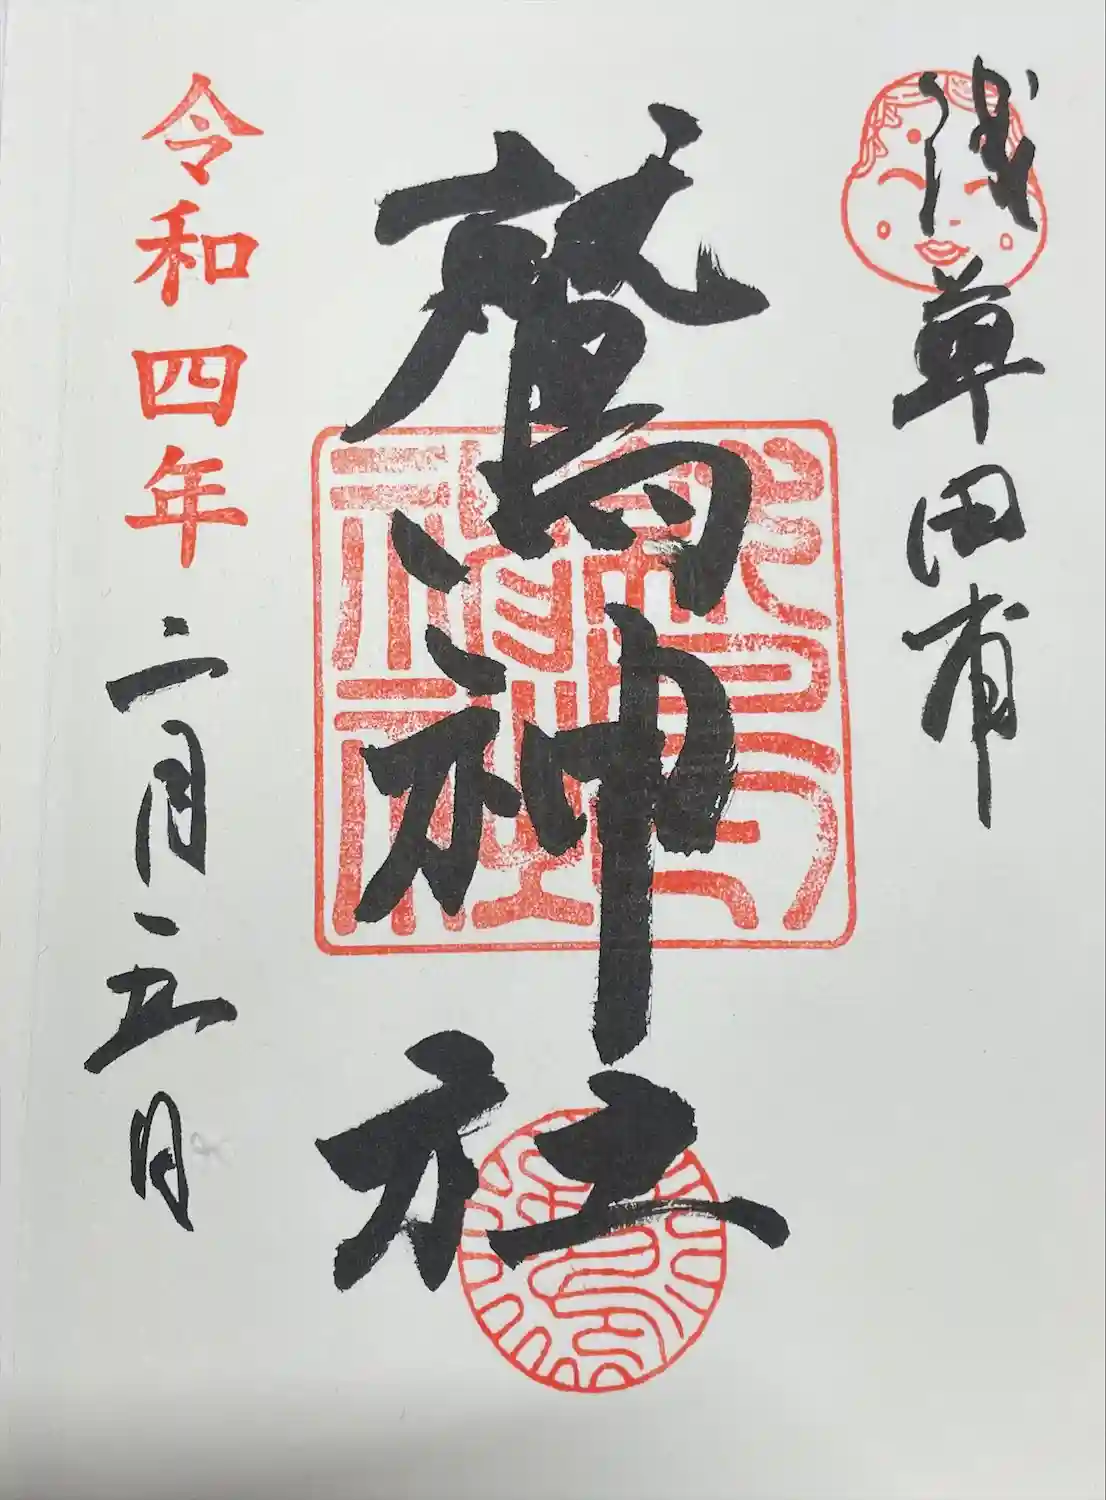 浅草田甫
鷲神社
鷲神社
令和四年二月五日